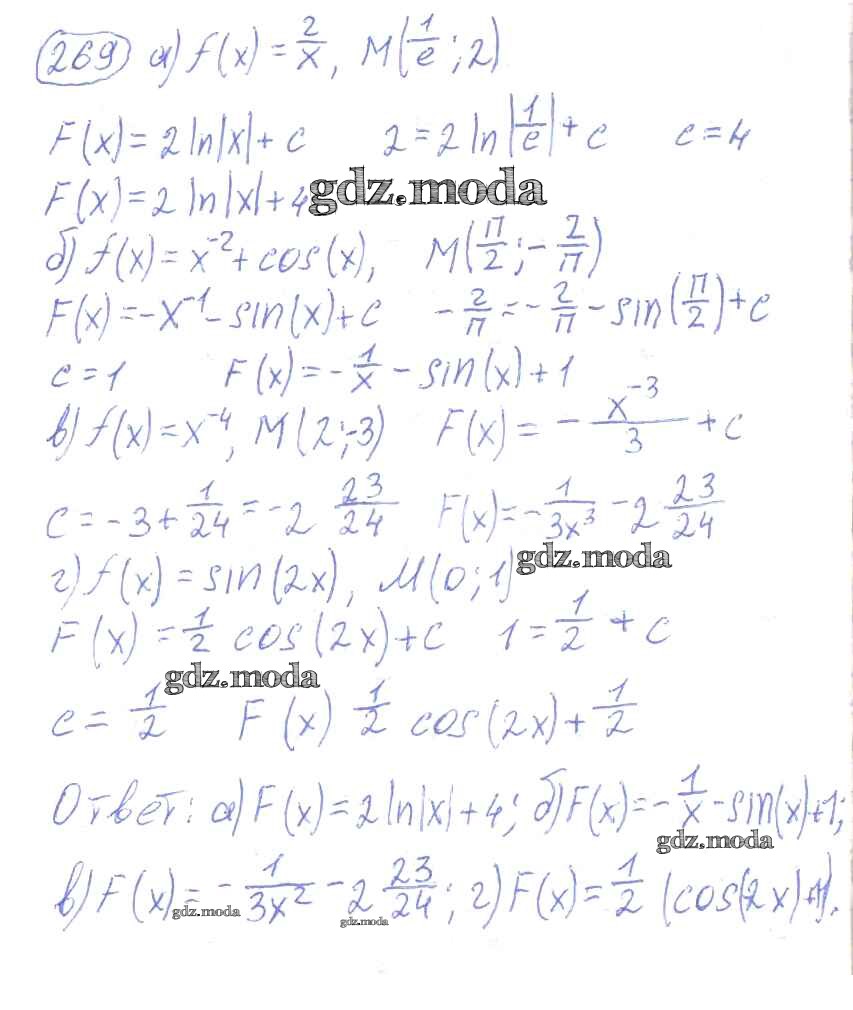 269 а) f(x) = 2/x, M(1/e; 2)
F(x) = 2 ln|x| + c 2 = 2 ln|1/e| + c c = 4
F(x) = 2 ln|x| + 4 gdz.moda
б) f(x) = x⁻² + cos(x), M(π/2; -2/π)
F(x) = -x⁻¹ - sin(x) + c -2/π = -2/π - sin(π/2) + c
c = 1 F(x) = -1/x - sin(x) + 1
в) f(x) = x⁻⁴, M(2; -3) F(x) = - x⁻³/3 + c
c = -3 + 1/24 = -2 23/24 F(x) = -1/3x³ - 2 23/24
г) f(x) = sin(2x), M(0; 1) gdz.moda
F(x) = 1/2 cos(2x) + c 1 = 1/2 + c
gdz.moda
c = 1/2 F(x) 1/2 cos(2x) + 1/2
Ответ: а) F(x) = 2 ln|x| + 4; б) F(x) = -1/x - sin(x) + 1;
gdz.moda
в) F(x) = -1/3x² - 2 23/24; г) F(x) = 1/2 (cos(2x) + 1).
gdz.moda gdz.moda